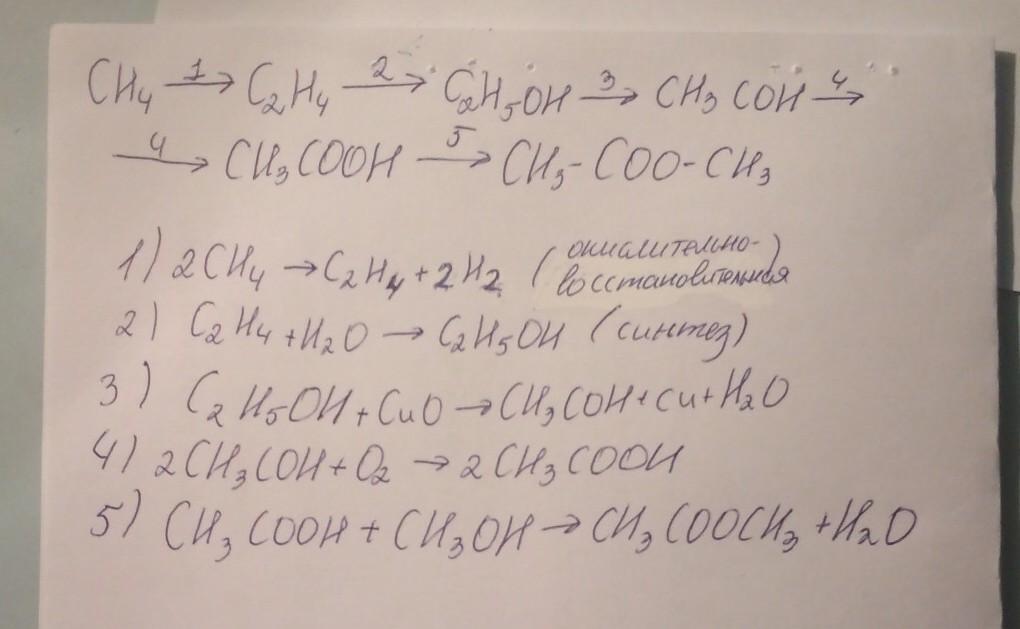 CH₄ 1→ C₂H₄ 2→ C₂H₅OH 3→ CH₃COH 4→
4→ CH₃COOH 5→ CH₃-COO-CH₃
1) 2CH₄ → C₂H₄ + 2H₂ (окислительно-
восстановительная)
2) C₂H₄ + H₂O → C₂H₅OH (синтез)
3) C₂H₅OH + CuO → CH₃COH + Cu + H₂O
4) 2CH₃COH + O₂ → 2CH₃COOH
5) CH₃COOH + CH₃OH → CH₃COOCH₃ + H₂O